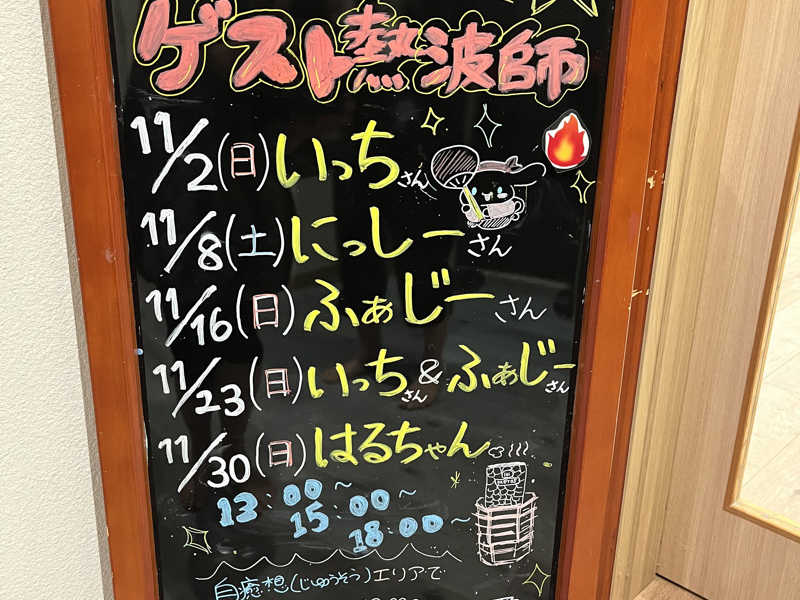 ゲスト熱波師
11/2(日)いっちさん
11/8(土)にっしーさん
11/16(日)ふぁじーさん
11/23(日)いっちさん&ふぁじーさん
11/30(日)はるちゃん
13:00~
15:00~
18:00~
自癒想(じゆうそう)エリアで